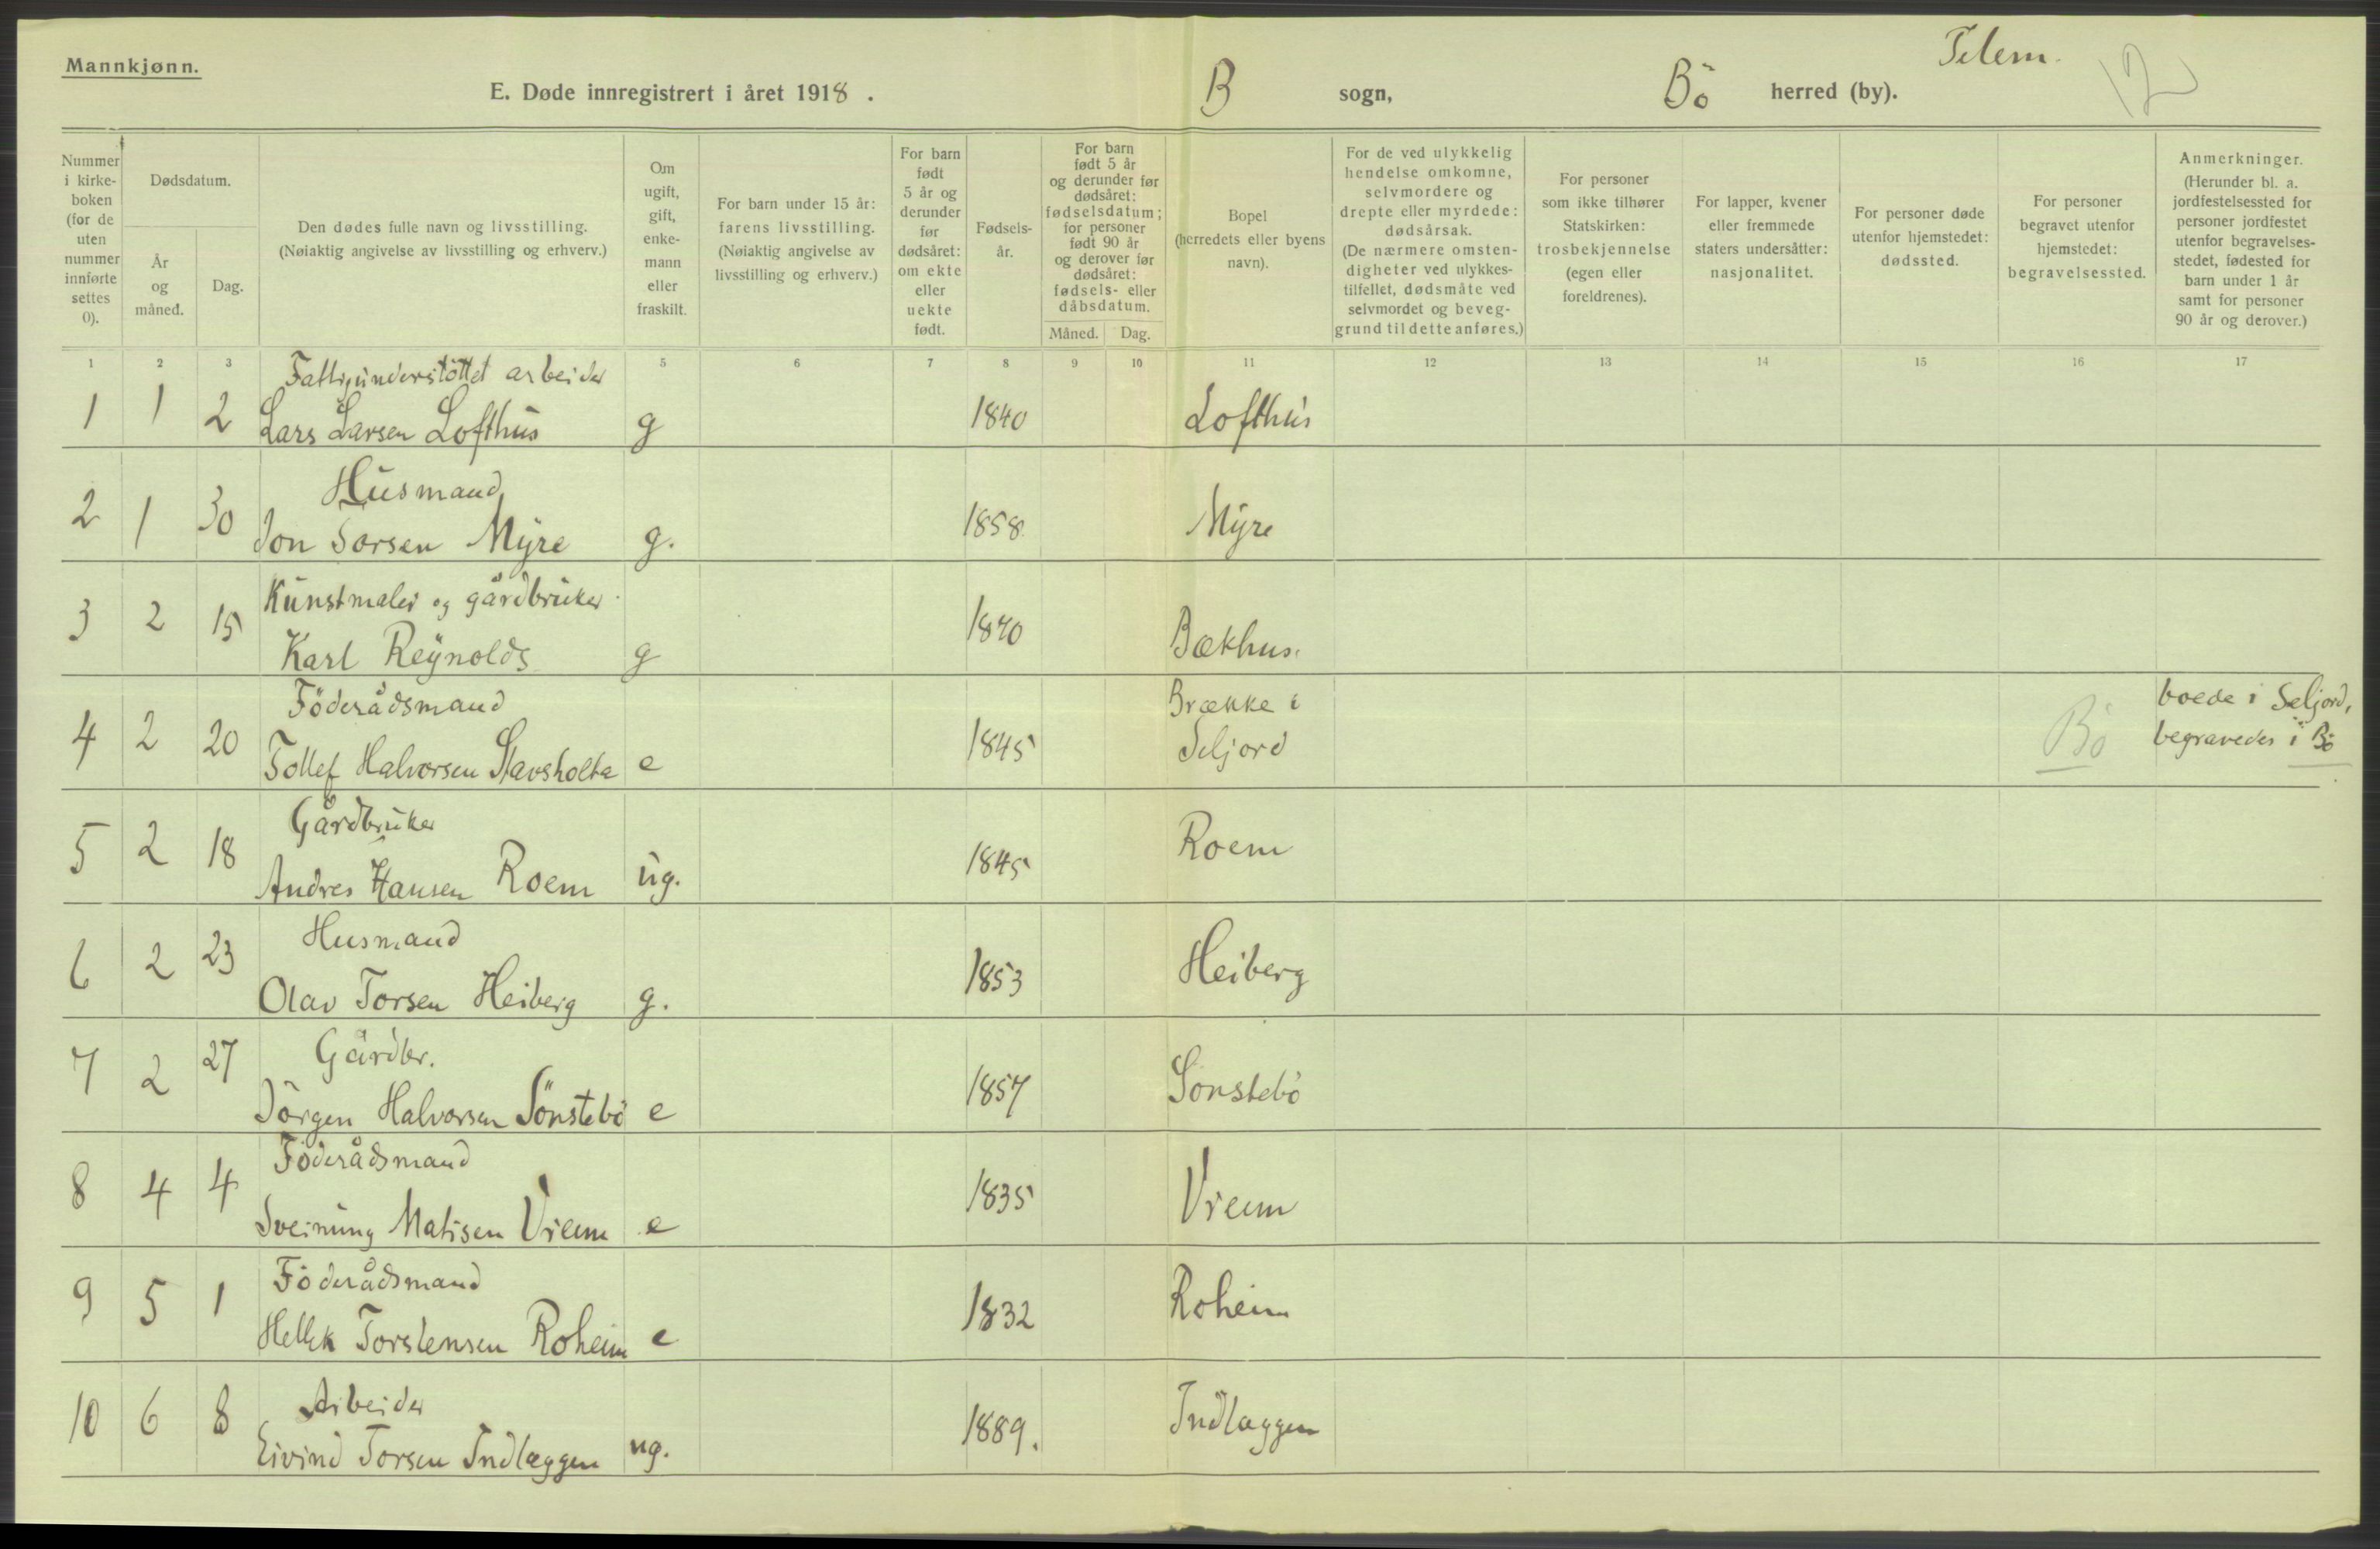 Mannkjønn.
E. Døde innregistrert i året 1918 .
B sogn,
Bö herred (by).
Telem.
12
Nummer i kirkeboken (for de uten nummer innførte settes 0).
Dødsdatum.
År og måned.
Dag.
Den dødes fulle navn og livsstilling.
(Nøiaktig angivelse av livsstilling og erhverv.)
Om ugift, gift, enkemann eller fraskilt.
For barn under 15 år: farens livsstilling.
(Nøiaktig angivelse av livsstilling og erhverv.)
For barn født 5 år og derunder før dødsåret: om ekte eller uekte født.
Fødselsår.
For barn født 5 år og derunder før dødsåret: fødselsdatum; for personer født 90 år og derover før dødsåret: fødsels- eller dåbsdatum.
Måned. Dag.
Bopel (herredets eller byens navn).
For de ved ulykkelig hendelse omkomne, selvmordere og drepte eller myrdede: dødsårsak.
(De nærmere omstendigheter ved ulykkestilfellet, dødsmåte ved selvmordet og beveggrund til dette anføres.)
For personer som ikke tilhører Statskirken: trosbekjennelse (egen eller foreldrenes).
For lapper, kvener eller fremmede staters undersåtter: nasjonalitet.
For personer døde utenfor hjemstedet: dødssted.
For personer begravet utenfor hjemstedet: begravelsessted.
Anmerkninger.
(Herunder bl. a. jordfestelsessted for personer jordfestet utenfor begravelsesstedet, fødested for barn under 1 år samt for personer 90 år og derover.)
1 2 3 5 6 7 8 9 10 11 12 13 14 15 16 17
Fattigunderstöttet arbeider
1 1 2 Lars Larsen Lofthus g 1840 Lofthus
Husmand
2 1 30 Jon Sorsen Myre g. 1858 Myre
Kunstmaler og gårdbruker
3 2 15 Karl Reynolds g 1840 Bækhus.
Föderådsmand
4 2 20 Tollef Halvorsen Stavsholta e 1845 Brække i Seljord Bö boede i Seljord, begravedes i Bö
Gårdbruker
5 2 18 Andres Hansen Roem ug. 1845 Roem
Husmand
6 2 23 Olav Torsen Heiberg g. 1853 Heiberg
Gårdbr.
7 2 27 Jörgen Halvorsen Sönstebö e 1857 Sönstebö
Föderådsmand
8 4 4 Sveinung Matisen Vreim e 1835 Vreim
Föderådsmand
9 5 1 Hellek Torstensen Roheim e 1832 Roheim
Arbeider
10 6 8 Eivind Torsen Indlæggen ug. 1889. Indlæggen